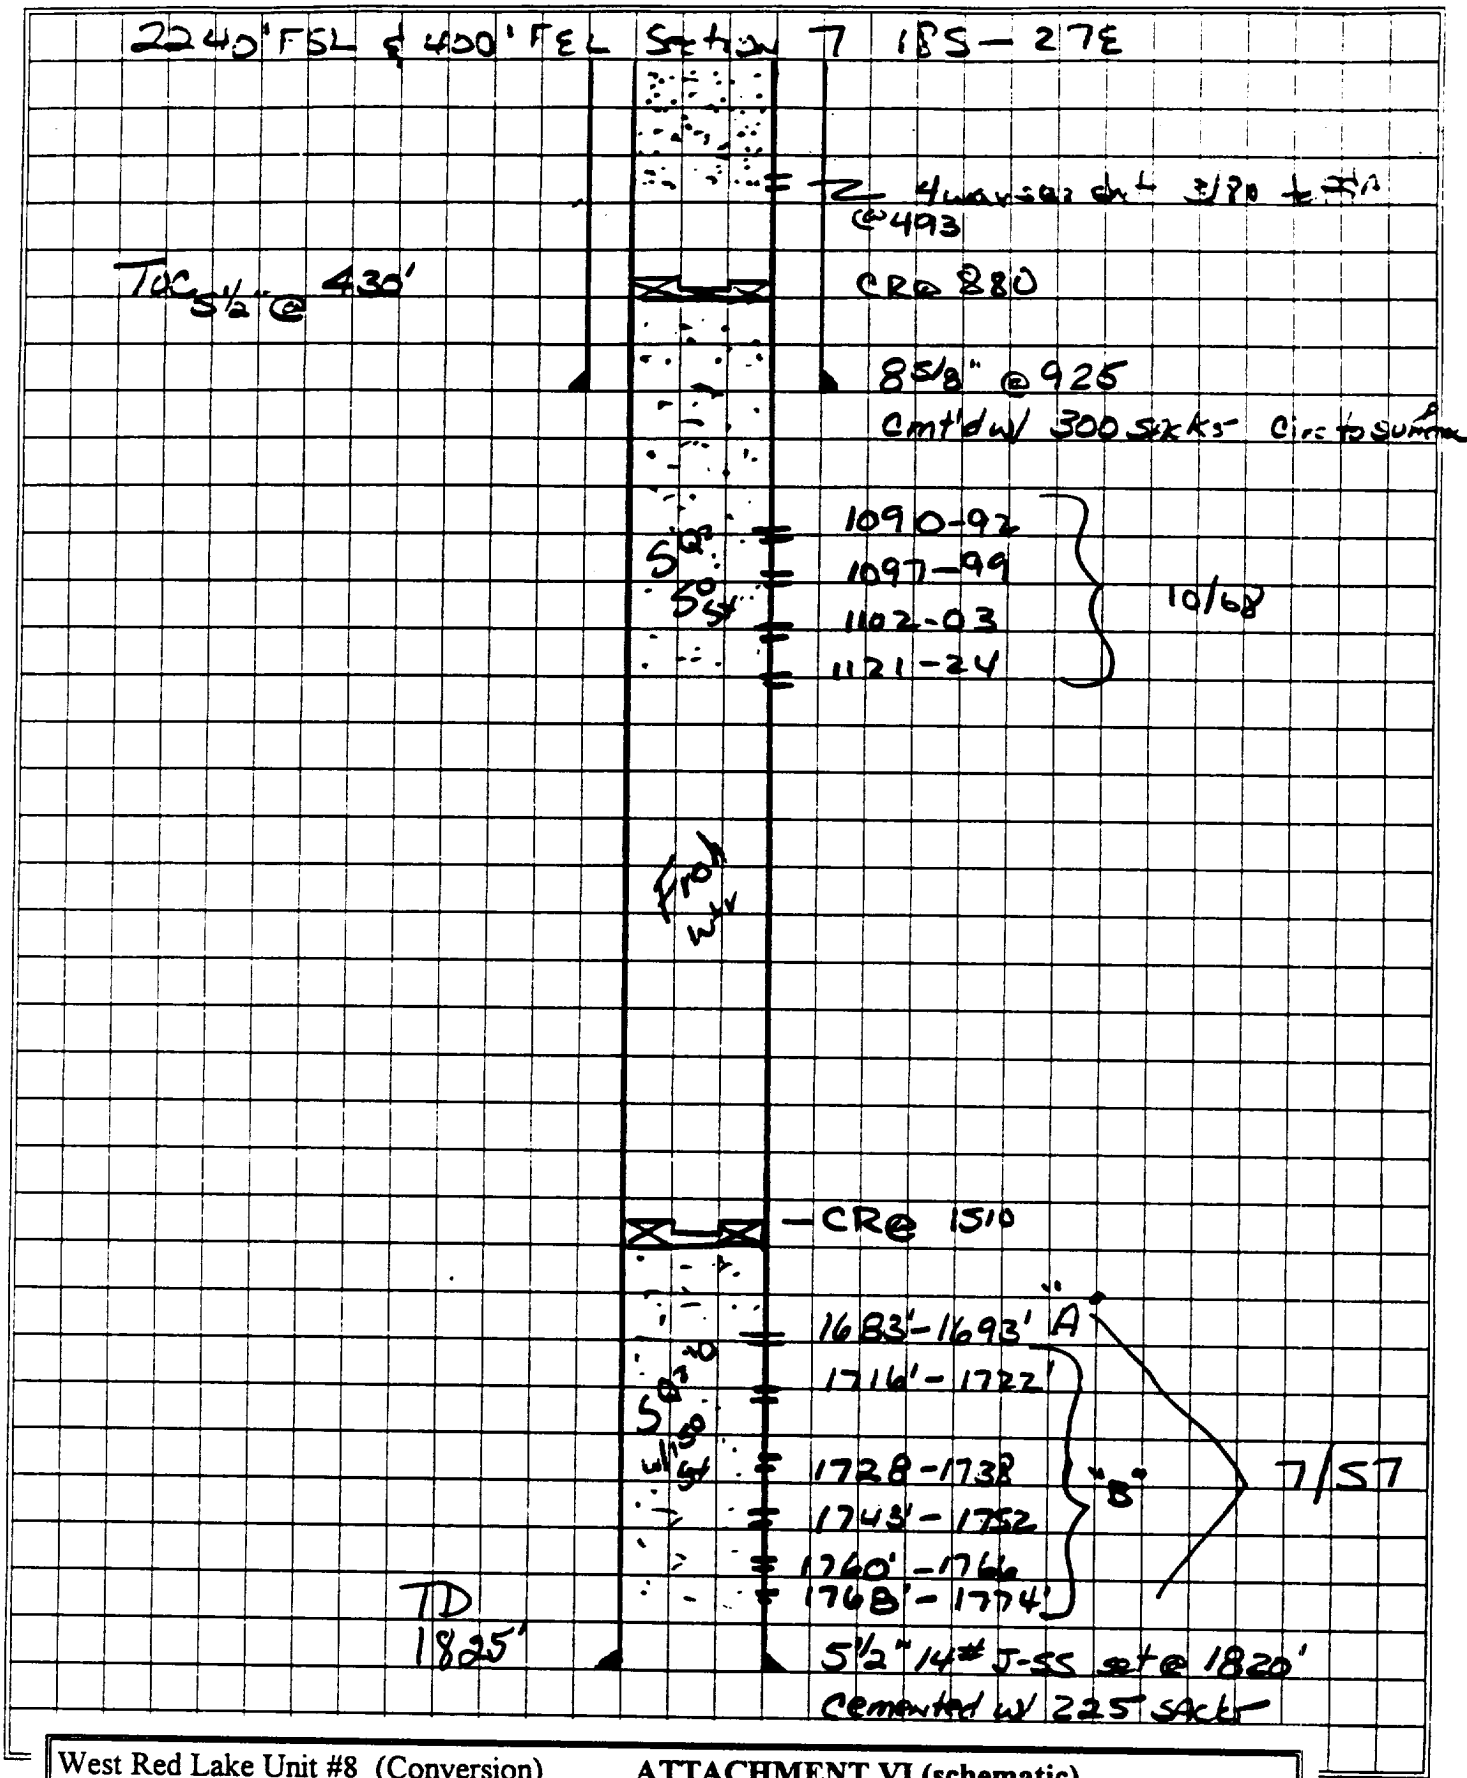 2240' FSL & 400' FEL Section 7 18S-27E
4 way sqz
@ 493
TOC 5 1/2" @ 430'
CR@ 880
8 5/8" @ 925
Cmt'd w/ 300 sacks Circ to surface
1090-92
1097-99
1102-03
1121-24
10/68
SQZ
50 sx
Frsh
wtr
- CR@ 1510
1683'-1693' "A"
1716'-1722'
1728-1738
1743'-1752
1760'-1766
1768'-1774'
"B"
7/57
SQZ'D
w/ 150
sx
TD
1825'
5 1/2" 14# J-55 set @ 1820'
Cemented w/ 225 sacks
West Red Lake Unit #8 (Conversion)
ATTACHMENT VI (schematic)